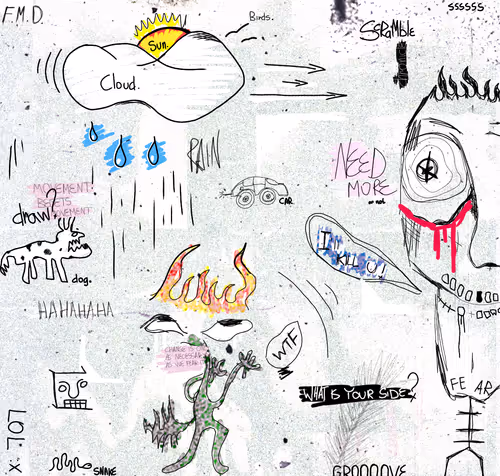 F.M.D.
Birds.
ssssss
Sun.
Scramble
Cloud.
RAIN
NEED
MORE
or not
MOVEMENT:
BEGETS
MOVEMENT
draw?
CAR
I'll
KILL U!
dog.
HAHAHAHA
WTF
CHANGE IS
AS NECESSARY
AS
FEAR
WHAT IS YOUR SIDE?
X: 707
SNAKE
GROOOOVE